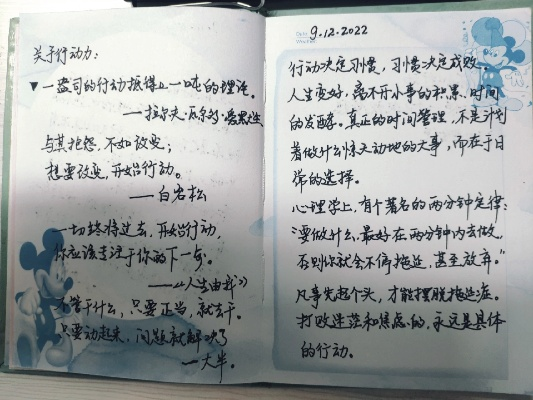 关于行动力:
▼一盎司的行动抵得上一吨的理论。
——拉尔夫·瓦尔多·爱默生
与其抱怨,不如改变;
想要改变,开始行动。
——白岩松
一切终将过去,开始行动,
你应该专注于你的下一步。
——《人生由料》
不管干什么,只要正当,就去干。
只要动起来,问题就解决了
—大半。
9.12.2022
Date
Weather
行动决定习惯,习惯决定成败
人生变好,离不开小事的积累,时间
的发酵。真正的时间管理,不是计划
着做什么惊天动地的大事,而在于日
常的选择。
心理学上,有个著名的两分钟定律:
“要做什么,最好在两分钟内去做,
否则你就会不停拖延,甚至放弃。”
凡事先起个头,才能摆脱拖延症。
打败迷茫和焦虑的,永远是具体
的行动。